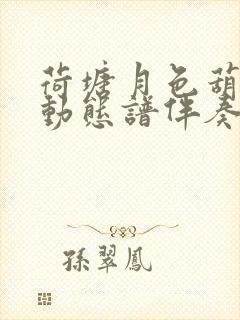 荷塘月色葫
動態譜伴奏
孫翠鳳